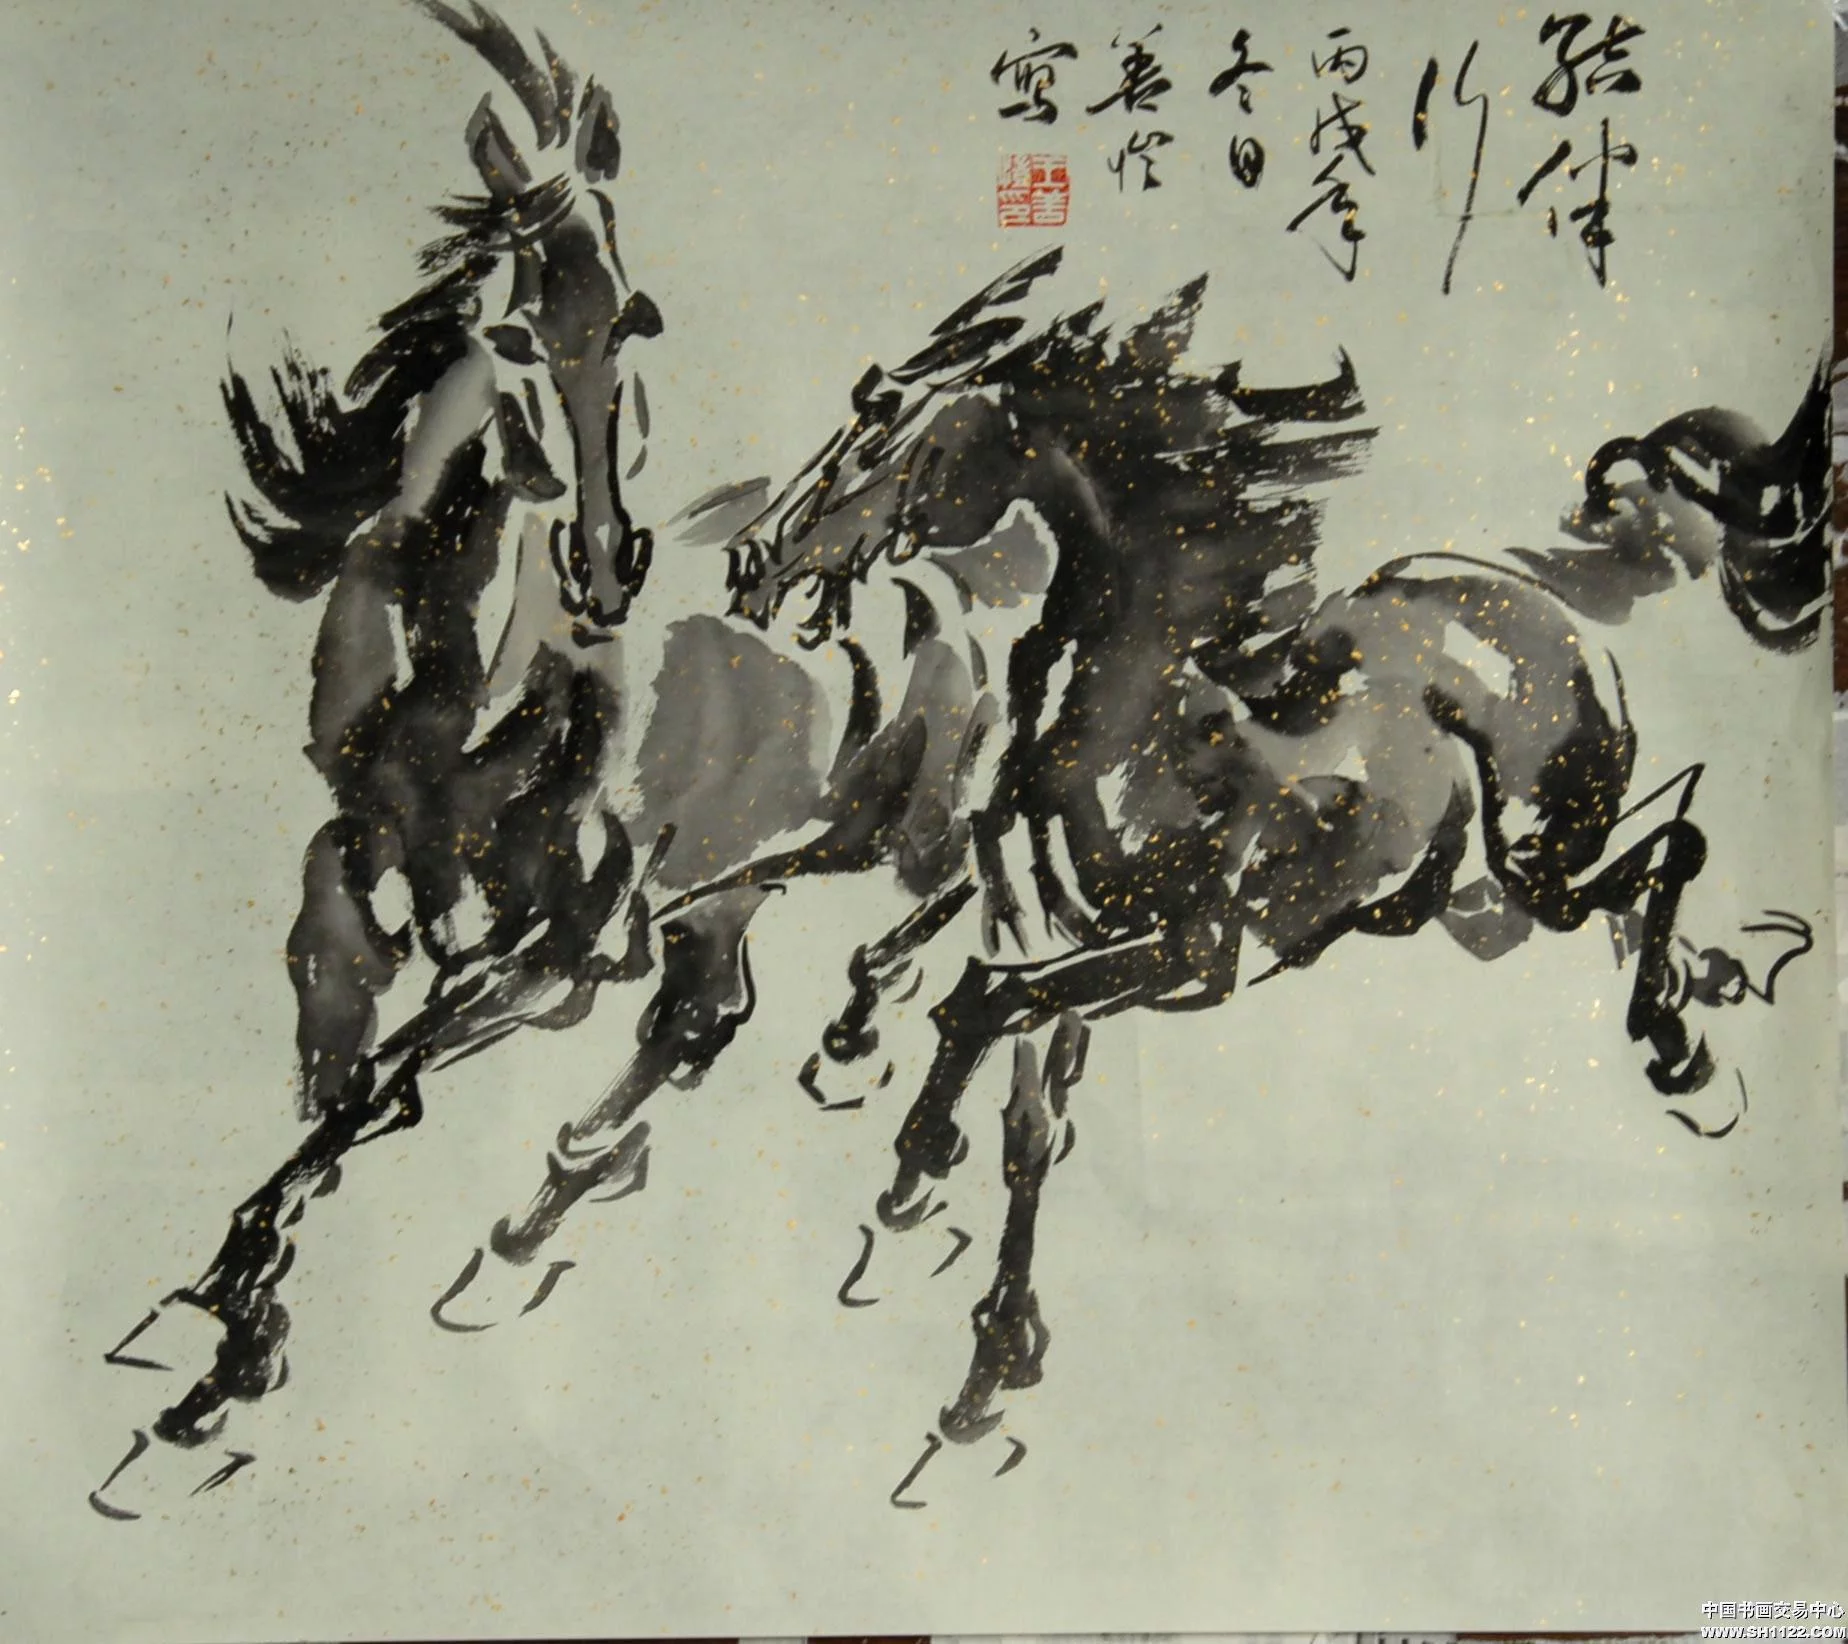 結伴
行
丙戌年
冬日
善愷
寫
王善
愷印
中国书画交易中心
WWW.SH1122.COM